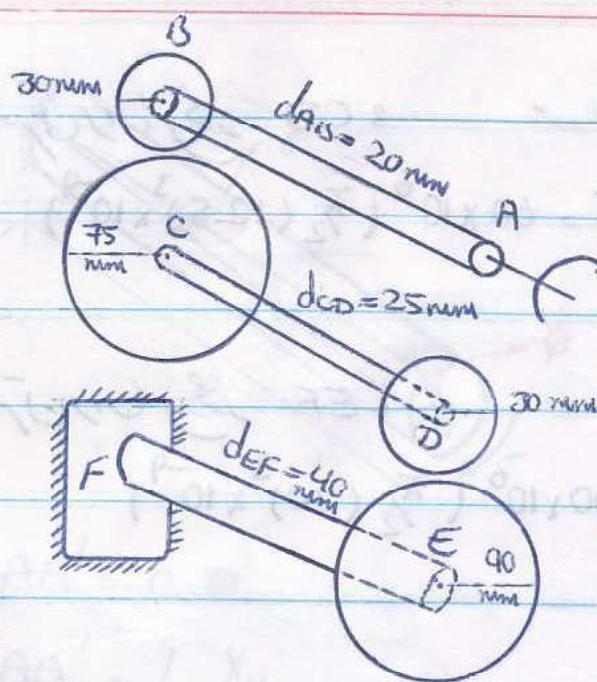 B
30mm
dAB = 20mm
A
75
mm
C
dCD = 25mm
30 mm
D
F
dEF = 40
mm
E
90
mm